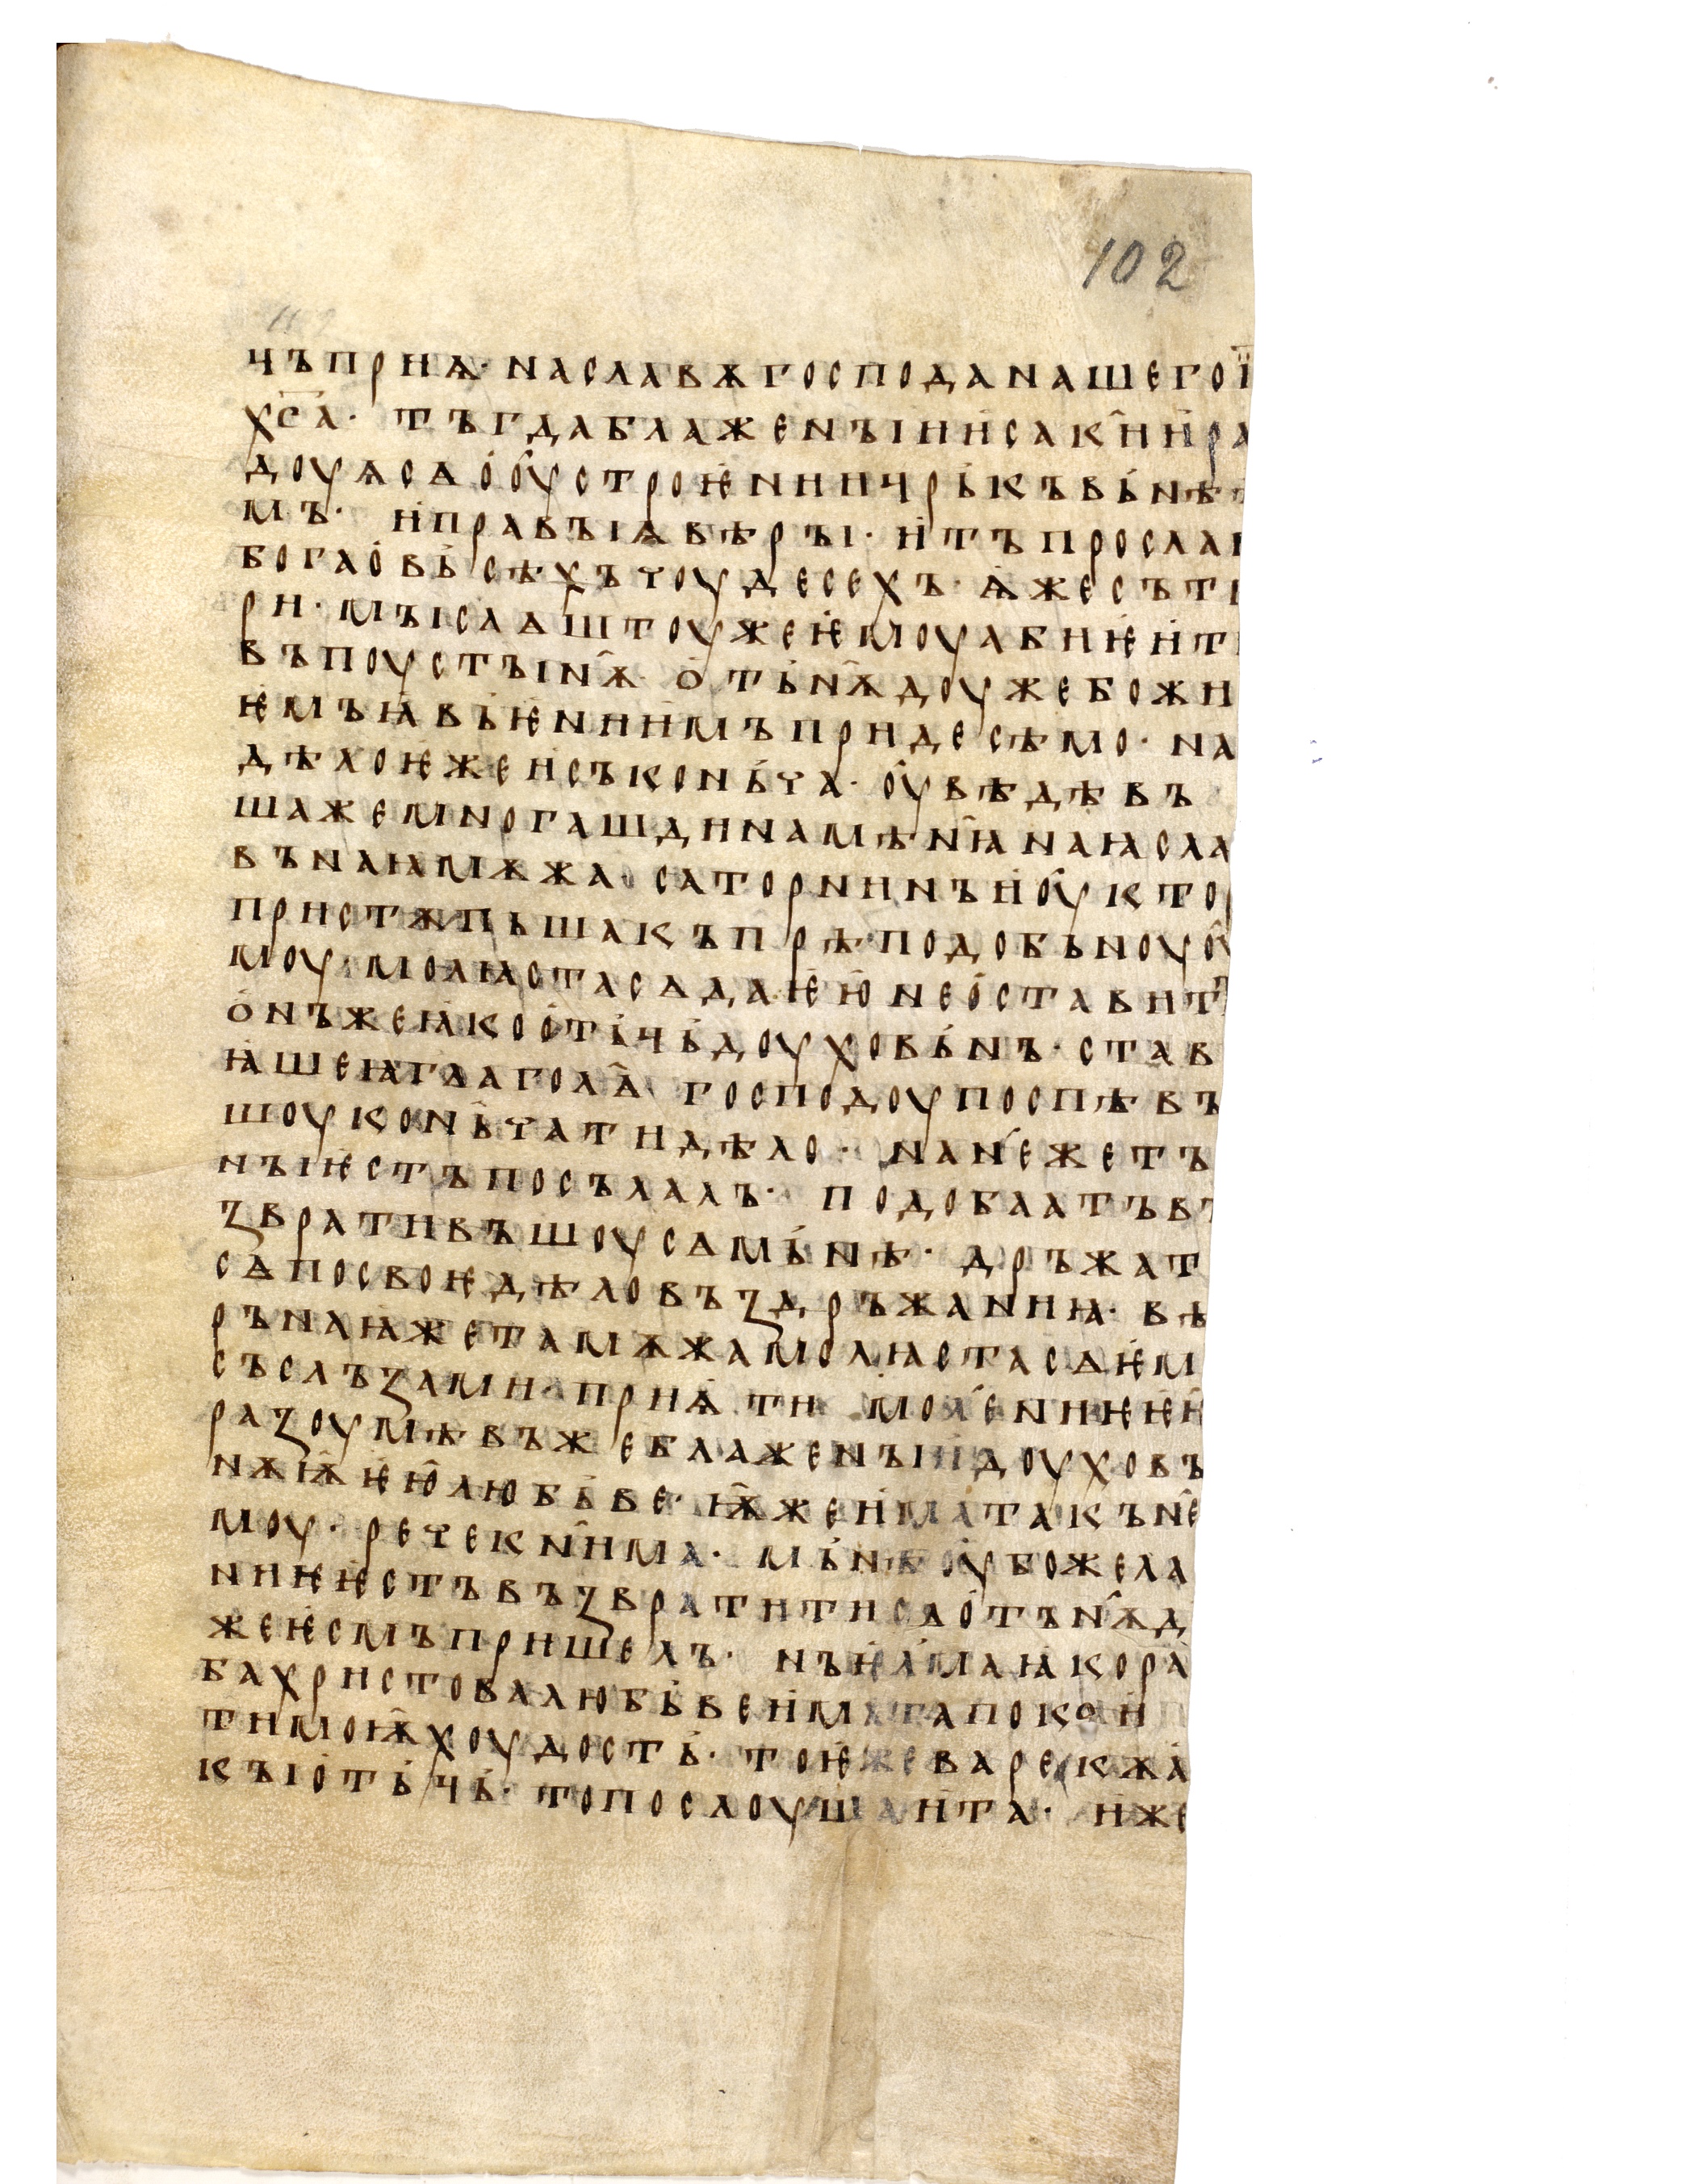 102
чъприѧ· наславѫгосподанашегоі
хс҃а· тъгдаблаженъіиисак҄иира
доуѩсѧо оустроѥниичрькъвьнѣ
мъ· иправъіѩвѣръі· итъпрослав
богаовьсѣхъчоудесехъ· ѩжесътв
ри· мъіслѧштоужеѥмоуабиѥити
въпоустъін҄ѫ отън҄ѫдоужебожи
ѥмъꙗвьѥниимъпридесѣмо· на
дѣлоѥжеисъконьча· оувѣдѣвъ
шажемногашꙇдинамѣн҄ꙗнаꙗсла
вънаꙗмѫжа· саторнинъиоукто
пристѫпьшакъпрѣподобьноуо
моу· молꙗстасѧдаѥюнеоставит
онъжеꙗкоотьчьдоуховьнъ· став
ꙗшеꙗглагол҄ѧ· господоупоспѣвъ
шоуконьчатидѣло· нан҄ежетъ
нъіѥстъпосълалъ· подобаатъв
ꙁвративъшоусѧмьнѣ· дръжат
сѧпосвоѥдѣловъꙁдръжаниꙗ· вѣ
рънаꙗжетамѫжамолꙗстасѧѥм
съслъꙁами· приѩти мол҄ениѥѥ
раꙁоумѣвъжеблаженъіидоуховъ
нѫѭѥюлюбъве· ѭжеиматакън҄е
моу· речекн҄има· мьнѣоубожела
ниѥѥстъвъꙁвратитисѧотън҄ѫд
жеѥсмъпришелъ· нъѥлмаꙗкора
бахристовалюбъвеиматапокои
тимоѭхоудость· тоѥжеварекѫ
къіотьчь· топослоушаита· иже